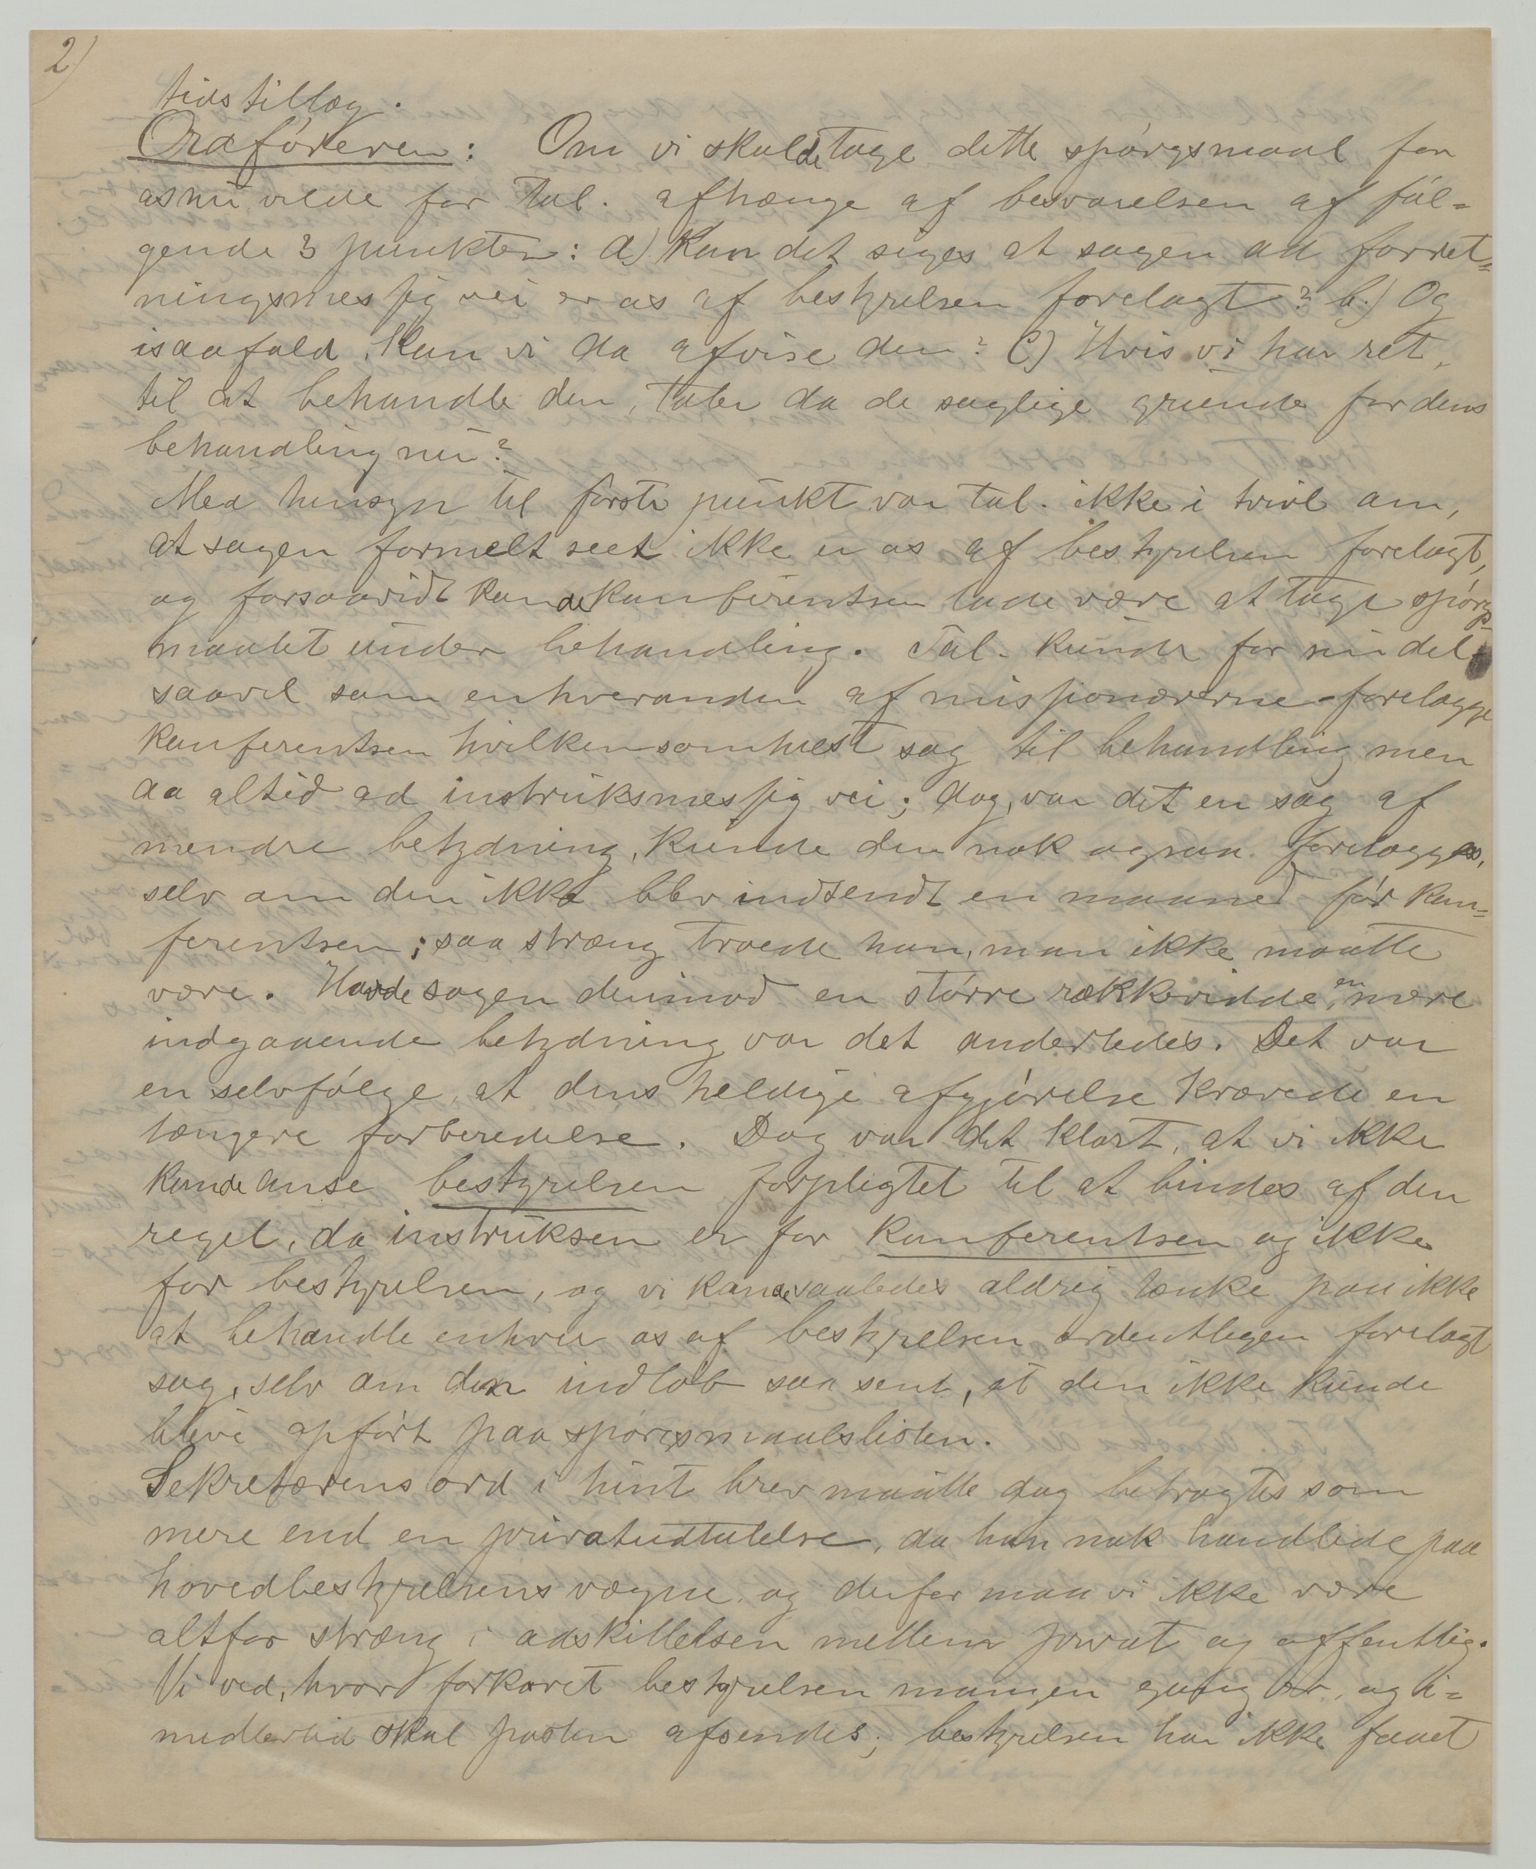 2)
tidstillæg.
Ordføreren: Om vi skulde tage dette spørgsmaal for
os nu vilde for Tal. afhænge af besvarelsen af føl=
gende 3 punkter: a) Kan det siges at sagen ad forret=
ningsmessig vei er os af bestyrelsen forelagt? b.) Og
isaafald, kan vi da afvise den? C) Hvis vi har ret
til at behandle den, taler da de saglige grunde for dens
behandling nu?
Med hensyn til første punkt var tal. ikke i tvivl om,
at sagen formelt seet ikke er os af bestyrelsen forelagt,
og forsaavidt kunde konferentsen lade være at tage spørgs-
maalet under behandling. Tal. kunde for sin del
saavel som enhveranden af missionærerne forelægge
konferentsen hvilkensomhelst sag til behandling men
da altid ad instruksmessig vei; dog, var det en sag af
mendre betydning, kunde den nok ogsaa forelægges,
selv om den ikke blev indsendt en maaned før kon=
ferentsen; saa stræng troede han, man ikke maatte
være. Havde sagen derimod en større rækkevidde, en mere
indgaaende betydning var det anderledes. Det var
en selvfølge, at dens heldige afgjørelse krævede en
længere forberedelse. Dog var det klart, at vi ikke
kunde anse bestyrelsen forpligtet til at bindes af den
regel, da instruksen er for konferentsen og ikke
for bestyrelsen, og vi kunde saaledes aldrig tænke paa ikke
at behandle enhver os af bestyrelsen ordentligen forelagt
sag, selv om den indløb saa sent, at den ikke kunde
blive opført paa spørgsmaalslisten.
Sekretærens ord i hint brev maatte dog betragtes som
mere end en privatudtalelse, da han nok handlede paa
hovedbestyrelsens vægne og derfor maa vi ikke være
altfor stræng i adskillelsen mellem privat og offentlig.
Vi ved, hvor forkavet bestyrelsen mangen gang er, og i=
medlertid skal posten afsendes; bestyrelsen har ikke faaet